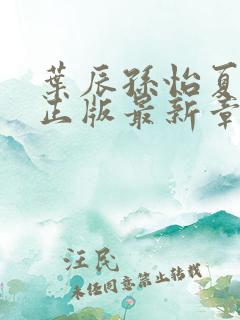 叶辰孙怡夏
正版最新章
汪民
未经同意禁止转载